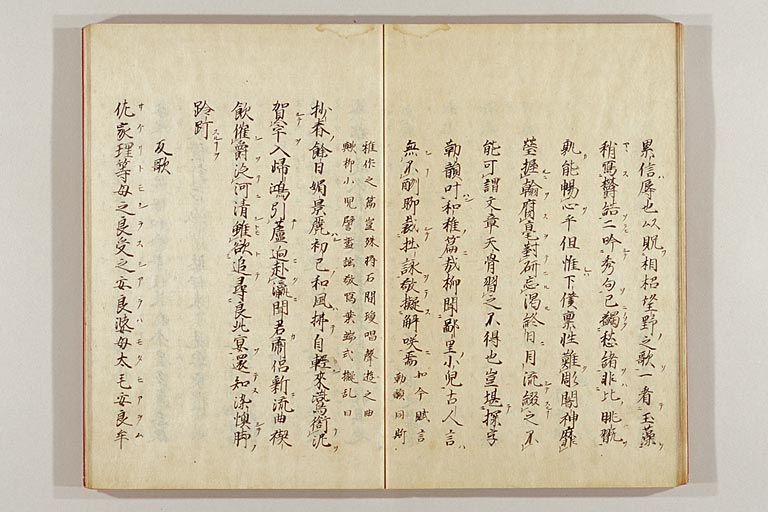 累信辱也以貺相招望野之歌一看玉藻
稍寫欝結二吟秀句已蠲愁緒非此眺翫
孰能暢心乎但惟下僕禀性難彫闇神靡
瑩握翰腐毫對研忘渇終日目流綴之不
能可謂文章天骨習之不得也豈堪探字
勒韻叶和雅篇哉抑聞鄙里小兒古人言
無不酬聊裁拙詠敬擬解咲焉
如今賦言
勒韻同斯
雅作之篇豈殊将石間瓊唱聲遊之曲
歟抑小兒譬濫謡敬寫葉端式擬乱曰
杪春餘日媚景麗初巳和風拂自輕來鷰銜泥
賀宇入歸鴻引蘆逈赴瀛聞君嘯侶新流曲禊
飲催爵泛河清雖欲追尋良此宴還知染懊脚
跉䟓
反歌
佐家理等母之良受之安良婆母太毛安良牟
サケリトモシラスシアラハモタモアラム